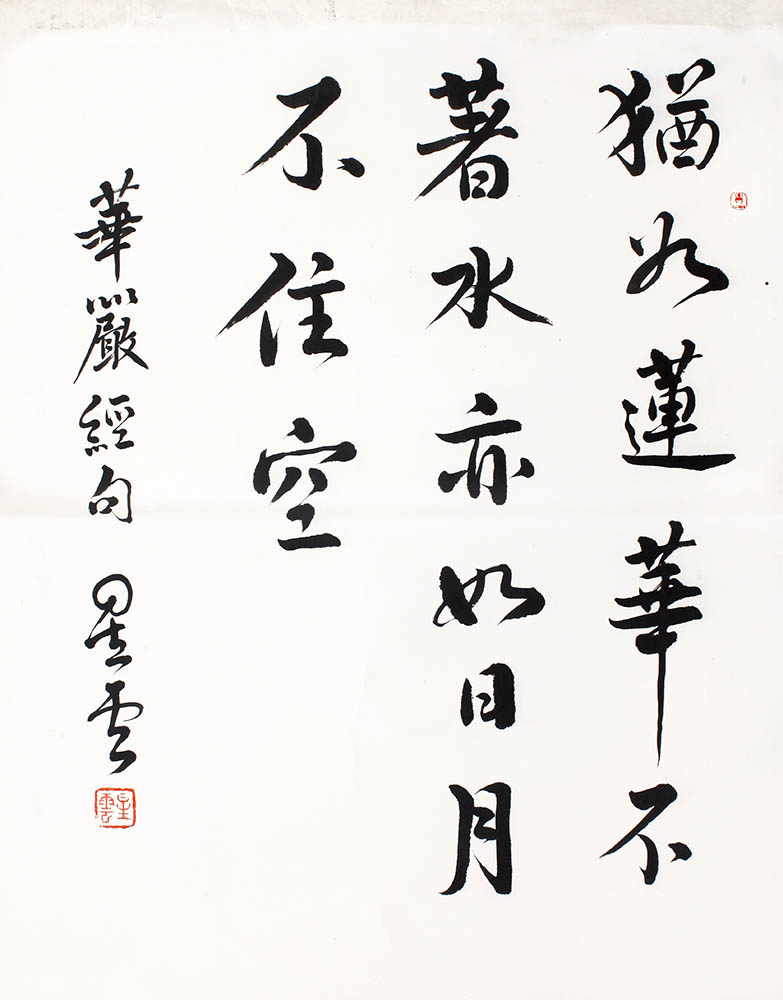 猶如蓮華不
著水亦如日月
不住空
華嚴經句 星雲
星雲